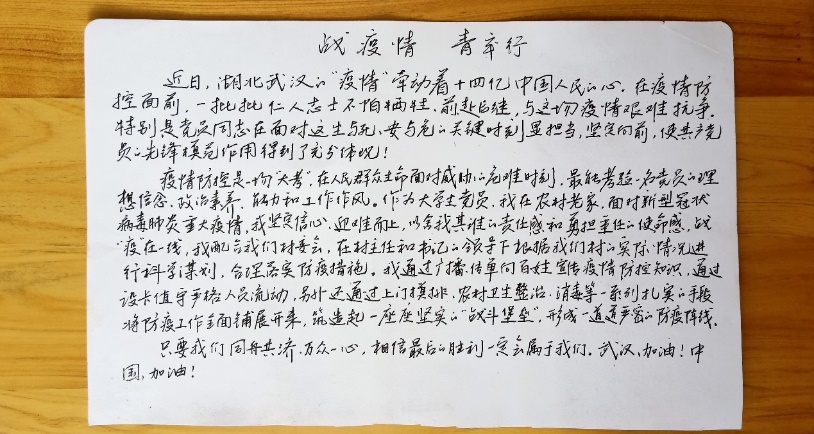 战疫情 青年行
近日，湖北武汉的“疫情”牵动着十四亿中国人民的心。在疫情防
控面前，一批批仁人志士不怕牺牲，前赴后继，与这场疫情艰难抗争。
特别是党员同志在面对这生与死、安与危的关键时刻显担当，坚定向前，使共产党
员的先锋模范作用得到了充分体现！
疫情防控是一场“大考”，在人民群众生命面对威胁的危难时刻，最能考验一名党员的理
想信念、政治素养、能力和工作作风。作为大学生党员，我在农村老家，面对新型冠状
病毒肺炎重大疫情，我坚定信心、迎难而上，以舍我其谁的责任感和勇担重任的使命感，战
“疫”在一线，我配合我们村委会，在村主任和书记的领导下根据我们村的实际情况进
行科学谋划，合理落实防疫措施。我通过广播、传单向百姓宣传疫情防控知识，通过
设卡值守严格人员流动，另外还通过上门摸排、农村卫生整治、消毒等一系列扎实的手段
将防疫工作全面铺展开来，筑造起一座座坚实的“战斗堡垒”，形成一道道严密的防疫阵线。
只要我们同舟共济、万众一心，相信最后的胜利一定会属于我们。武汉，加油！中
国，加油！